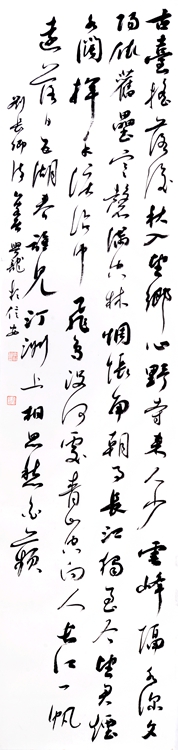 古臺摇落後秋入望鄉心野寺來人少雲峰隔水深夕
陽依舊壘寒磬滿空林惆悵南朝事長江獨至今望君煙
水闊揮手泪沾巾飛鳥沒何處青山空向人長江一帆
遠落日五湖春誰見汀洲上相思愁白蘋
劉長卿詩 於信安